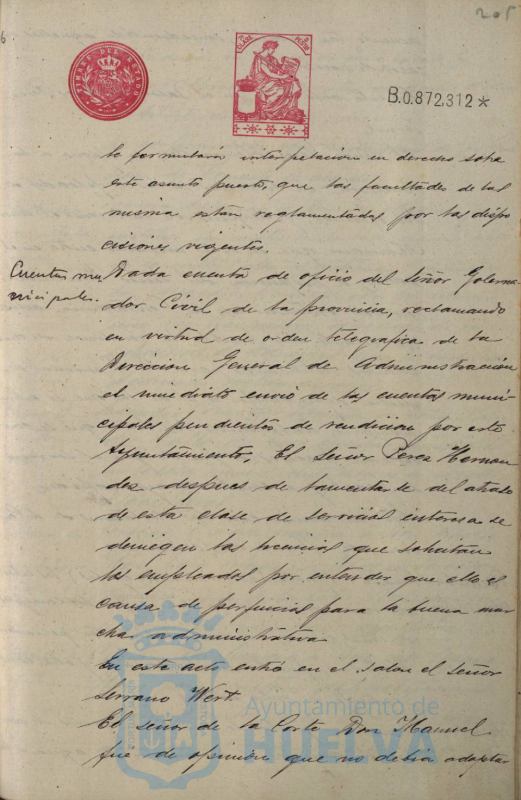 205
TIMBRE DEL ESTADO
CLASE
B.0.872,312*
le formularán interpelación en derecho sobre
este asunto puesto, que las facultades de las
misma estan reglamentadas por las dispo
cisiones vigentes.
Cuentas mu
nicipales.
Dada cuenta de oficio del Señor Goberna-
dor Civil de la provincia, reclamando
en virtud de orden telegrafica de la
Direccion General de Administración
el inmediato envió de las cuentas muni-
cipales pendientes de rendicion por este
Ayuntamiento, El Señor Perez Hernan
dez despues de lamentarse del atraso
de esta clase de servicios interesa se
deniegen las licencias que solicitan
los empleados por entender que ello es
causa de perjuicios para la buena mar
cha administrativa
En este acto entró en el salon el señor
Serrano Wert.
El señor de la Corte Don Manuel
fue de opinión que no debia adoptar
Ayuntamiento de
HUELVA